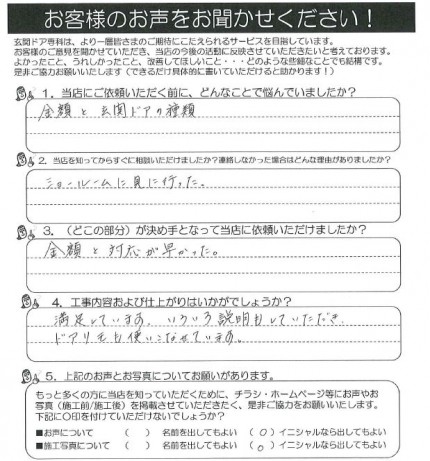 お客様のお声をお聞かせください！
玄関ドア専科は、より一層皆さまのご期待にこたえられるサービスを目指しています。
お客様のご意見を聞かせていただき、当店の今後の活動に反映させていただきたいと考えております。
よかったこと、うれしかったこと、改善してほしいこと・・・どのような些細なことでも結構です。
是非ご協力お願いいたします（できるだけ具体的に書いていただけると助かります！）
1．当店にご依頼いただく前に、どんなことで悩んでいましたか？
金額と玄関ドアの種類
2．当店を知ってからすぐに相談いただけましたか？連絡しなかった場合はどんな理由がありましたか？
ショールームに見に行った。
3．（どこの部分）が決め手となって当店に依頼いただけましたか？
金額と対応が早かった。
4．工事内容および仕上がりはいかがでしょうか？
満足しています。いろいろ説明もしていただき、
ドアリモも使いこなせています。
5．上記のお声とお写真についてお願いがあります。
もっと多くの方に当店を知っていただくために、チラシ・ホームページ等にお声やお
写真（施工前/施工後）を掲載させていただきたく、是非ご協力をお願いいたします。
下記に〇印を付けていただけないでしょうか？
■お声について （ ） 名前を出してもよい （○）イニシャルなら出してもよい
■施工写真について （ ） 名前を出してもよい （○）イニシャルなら出してもよい